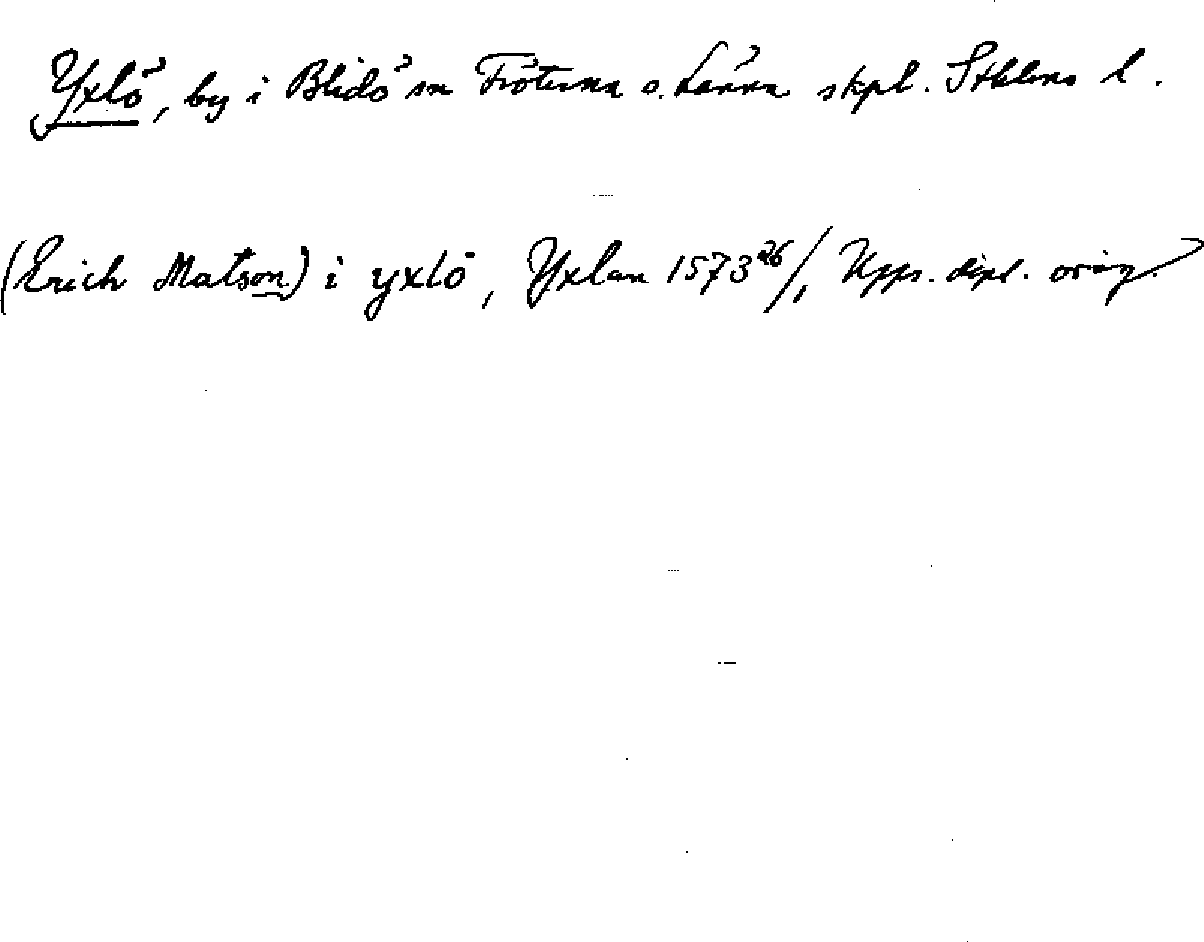 Yxlö, by i Blidö sn Frötuna o. Länna skpl. Sthlms l.
(Erich Matson) i yxlö, Yxlan 1573 26/1, Upps. dipl. orig.